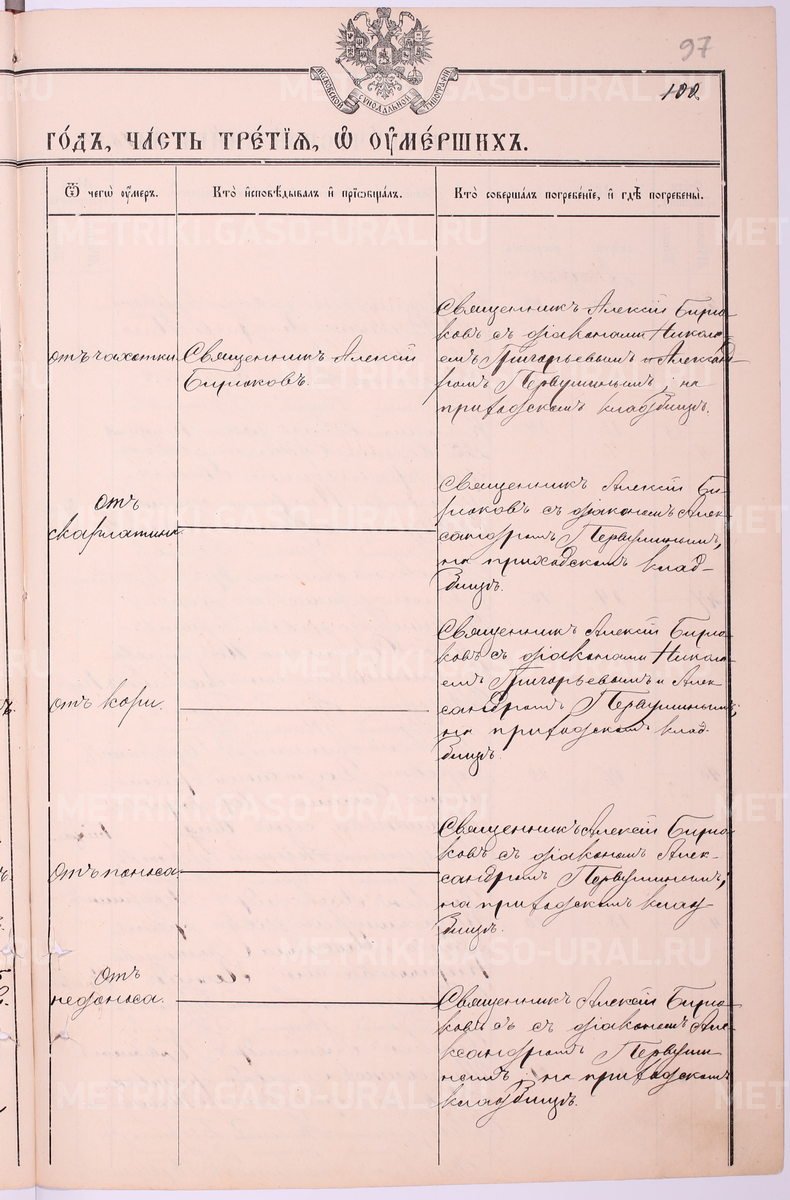 97
100
МОСКОВСКОЙ СѴНОДАЛЬНОЙ ТИПОГРАФІИ
ГО́ДЪ, ЧА́СТЬ ТРЕ́ТІѦ, Ѡ҆ ОУ҆МЕ́РШИХЪ.
Ѿ чегѡ̀ оу҆́меръ.
Кто̀ и҆сповѣ́дывалъ и҆ прїѻбща́лъ.
Кто̀ соверша́лъ погребе́нїе, и҆ гдѣ̀ погребены̀.
отъ чахотки
Священникъ Алексій
Бирюковъ.
Священникъ Алексій Бирю-
ковъ съ діаконами Никола-
емъ Григорьевымъ и Алексан-
дромъ Первушинымъ; на
приходскомъ кладбищѣ.
отъ
скарлатины
Священникъ Алексій Би-
рюковъ съ діакономъ Алек-
сандромъ Первушинымъ,
на приходскомъ клад-
бищѣ.
отъ кори.
Священникъ Алексій Бирю-
ковъ съ діаконами Никола-
емъ Григорьевымъ и Алек-
сандромъ Первушинымъ;
на приходскомъ клад-
бищѣ.
отъ поноса
Священникъ Алексій Бирю-
ковъ съ діакономъ Алек-
сандромъ Первушинымъ;
на приходскомъ клад
бищѣ.
отъ
недоноса.
Священникъ Алексій Бирю-
ковъ съ діакономъ Але-
ксандромъ Первуши-
нымъ; на приходскомъ
кладбищѣ.
METRIKI.GASO-URAL.RU